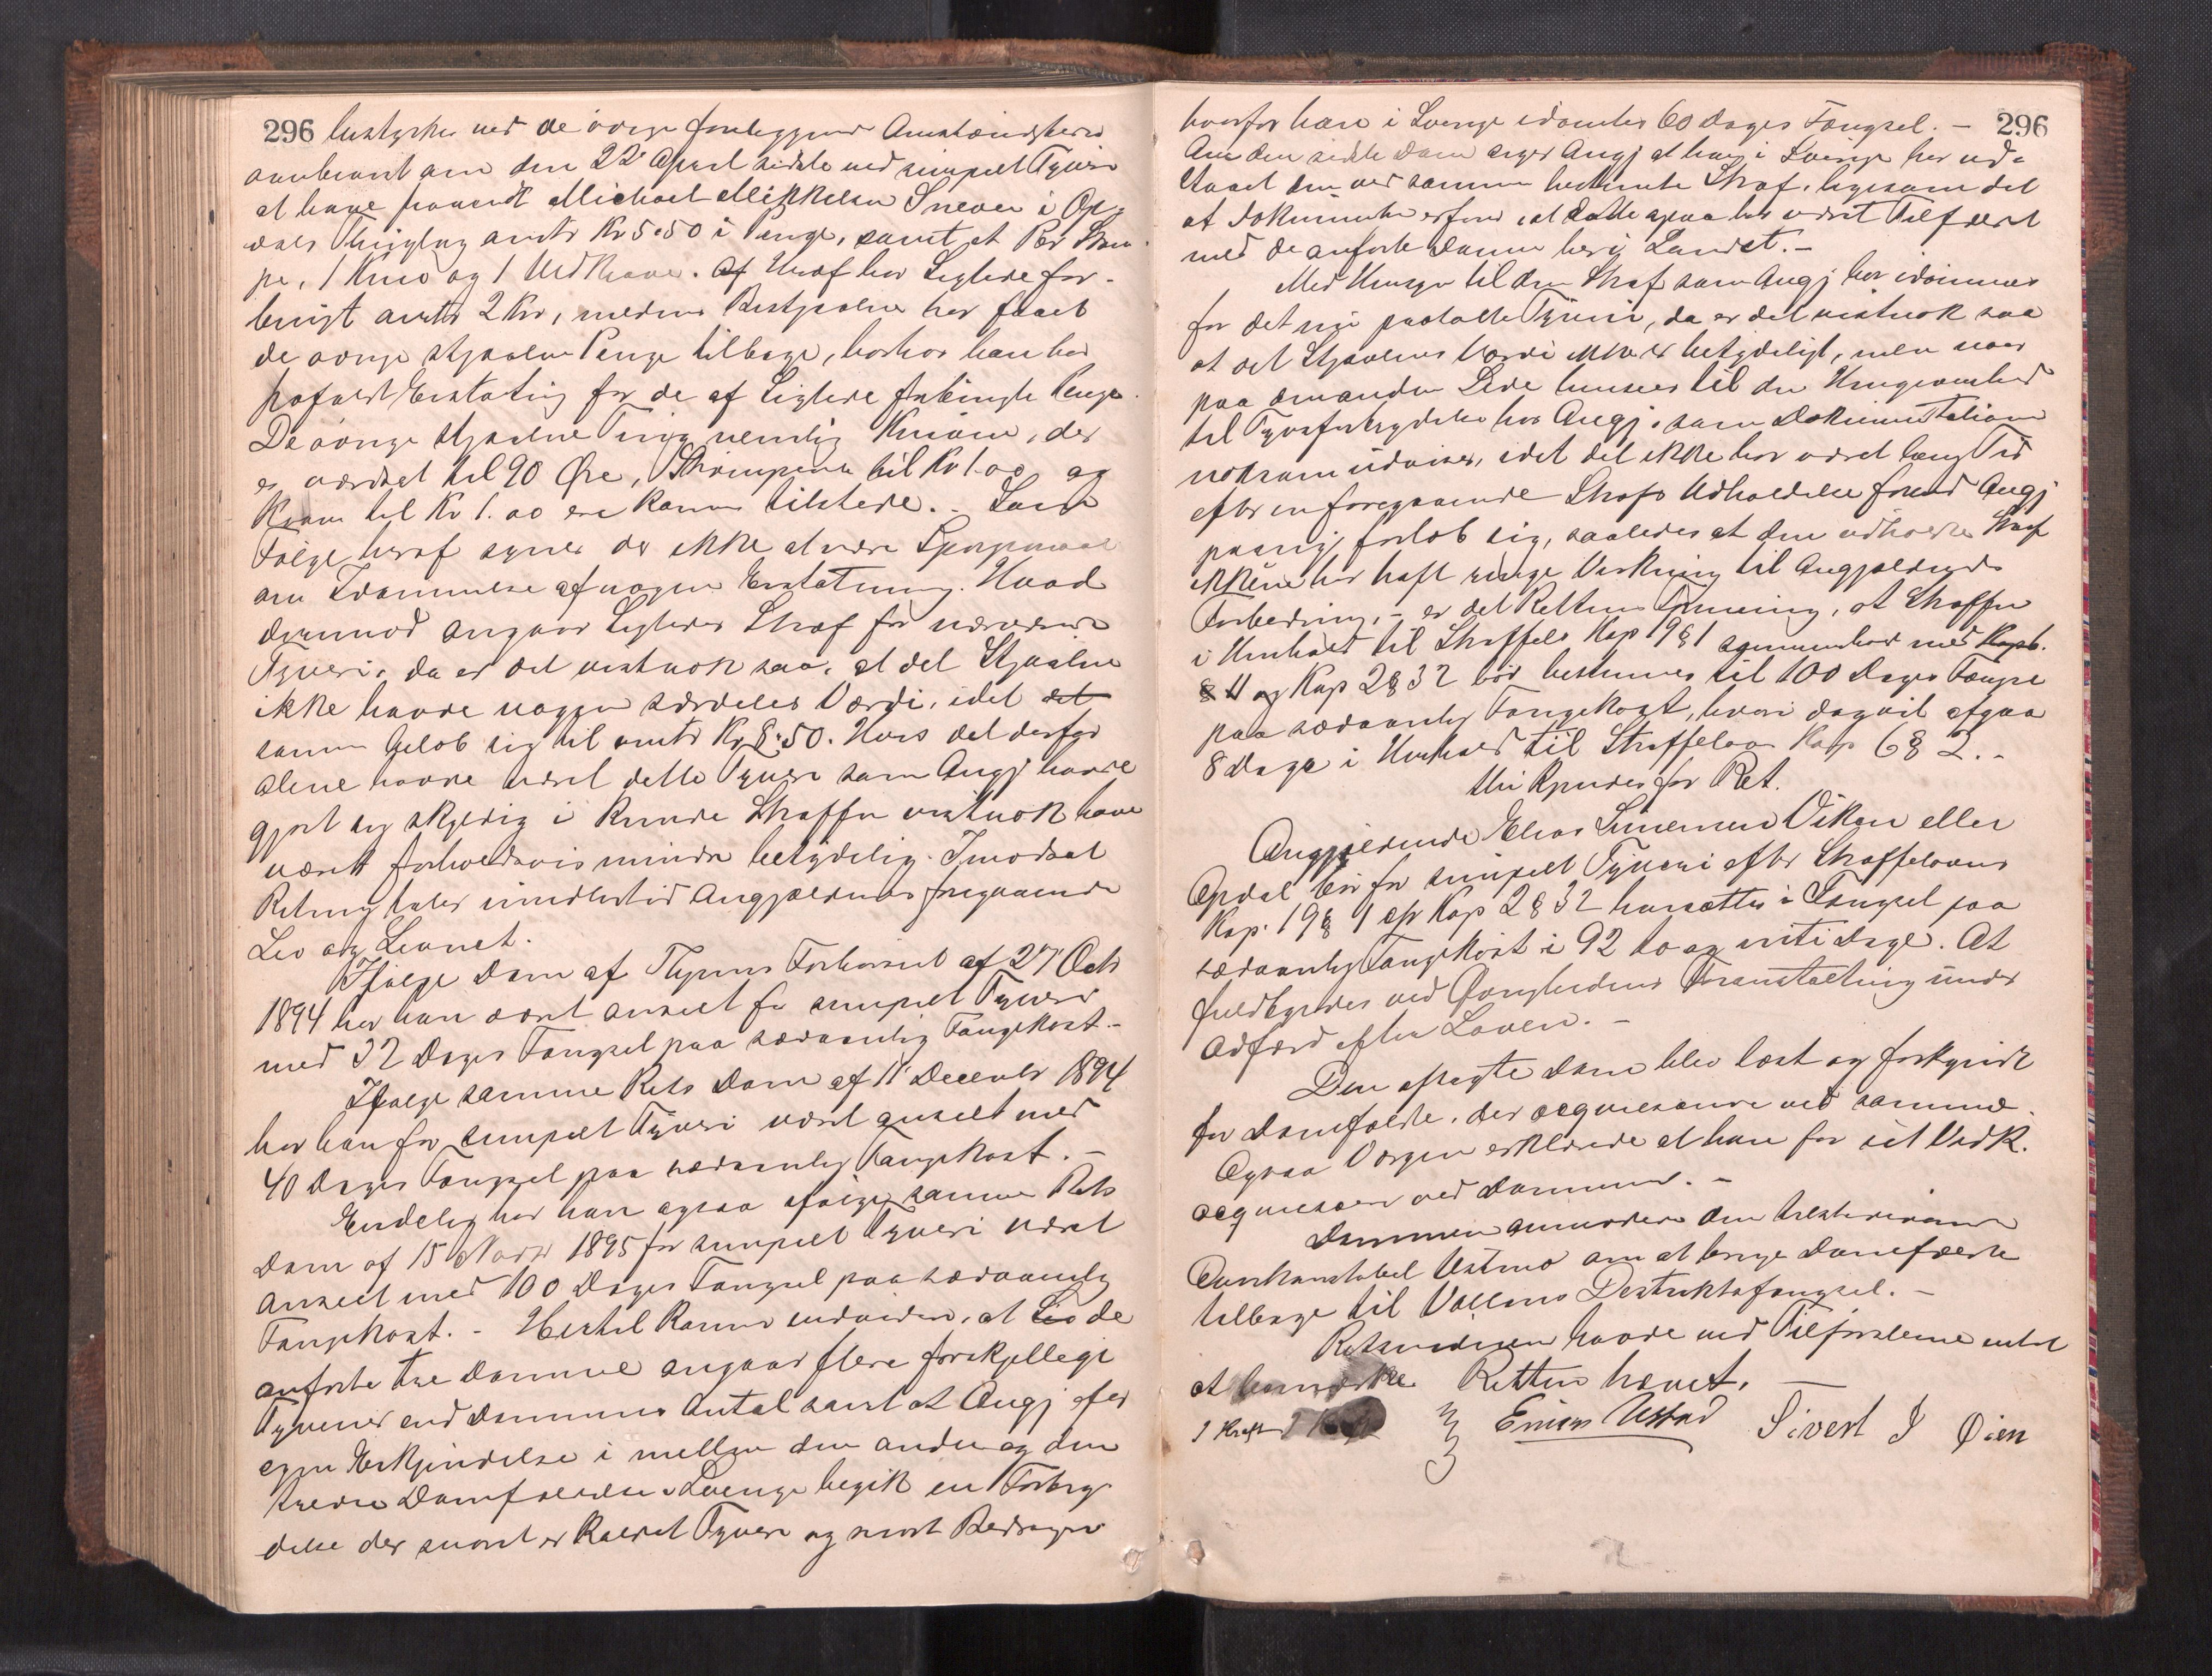 296 bestyrkes ved de øvrige foreliggende Omstændigheder
overbevist om den 22' April sidste ved simpelt Tyveri
at have fravendt Michael Mikkelsen Sneven i Op-
dals Thinglag omtr Kr 5.50 i Penge, samt et Par Strøm-
per, 1 Kniv og 1 Uldkrave. Af heraf har Tiltalte for-
brugt omtr 2 Kr, medens Bestjaalne har faaet
de øvrige stjaalne Penge tilbage, hvorhos han har
frafaldt Erstatning for de af Tiltalte forbrugte Penge.
De øvrige stjaalne Ting nemlig Kniven, der
er værdsat til 90 Øre, Strømperne til Kr 1.00 og
Kraven til Kr 1.00 ere komne tilstede. - Som
Følge heraf synes der ikke at være Spørgsmaal
om Idømmelse af nogen Erstatning. Hvad
derimod angaar Tiltaltes Straf for nærværende
Tyveri, da er det vistnok saa, at det Stjaalne
ikke havde nogen særdeles Værdi, idet det
samme beløb sig til omtr Kr 8.50. Hvis det derfor
alene havde været dette Tyveri som Angj havde
gjort sig skyldig i kunde Straffen vistnok have
været forholdsvis mindre betydelig. I modsat
Retning taler imidlertid Angjældendes foregaaende
Liv og Levnet.
Ifølge Dom af Forhørsret af 27' Octr
1894 har han været anseet for simpelt Tyveri
med 32 Dages Fængsel paa sædvanlig Fangekost. -
Ifølge samme Rets Dom af 11' Decembr 1894
har han for simpelt Tyveri været anseet med
40 Dages Fængsel paa sædvanlig Fangekost. -
Endelig har han ogsaa ifølge samme Rets
Dom af 15 1895 for simpelt Tyveri været
anseet med 100 Dages Fængsel paa sædvanlig
Fangekost. - Hertil kommer endvidere, at Liv de
anførte tre Domme angaar flere forskjellige
Tyverier end Dommenes Antal samt at Angj efter
egen Erkjendelse i mellem den anden og den
tredie Domfældelse i Sverige begik en Forbry-
delse der snart er kaldet Tyveri og snart Bedrageri
hvorfor han i Sverige idømtes 60 Dages Fængsel. - 296
Om den sidste Dom siger Angj at han i Sverige har ud-
staaet den ved samme bestemte Straf, ligesom det
af Dokumenterne erfares, at dette ogsaa har været Tilfældet
med de anførte Domme her i Landet. -
Med Hensyn til den Straf som Angj bør idømmes
for det nye paatalte Tyveri, da er det vistnok saa
at det Stjaalnes Værdi ikke er betydeligt, men naar
paa den anden Side henses til den Hengivenhed
til Tyvsforbrydelser hos Angj, som Dokumentationen
noksom udviser, idet det ikke har været lang Tid
efter en foregaaende Strafs Udholdelse førend Angj
paany forløb sig, saaledes at den udholdte Straf
ikkun har haft ringe Virkning til Angjældendes
Forbedring, - er det Rettens Formening, at Straffen
i Henhold til Straffels Kap 19 § 1 sammenholdt med Kap 6.
§ 11 og Kap 2 § 32 bør bestemmes til 100 Dages Fængsel
paa sædvanlig Fangekost, hvori dog vil afgaa
8 Dage i Henhold til Straffeloven Kap 6 § 2. -
Thi kjendes for Ret.
Angjældende Elias Viken eller
Opdal bør for simpelt Tyveri efter Straffelovens
Kap. 19 § 1 cfr Kap 2 § 32 hensættes i Fængsel paa
sædvanlig Fangekost i 92 to og niti Dage. At
fuldbyrdes ved Øvrighedens Foranstaltning under
Adfærd efter Loven. -
Den afsagte Dom blev læst og forkyndt
for Domfældte, der acquiescerede ved samme.
Ogsaa Værgen erklærede at han for sit Vedk.
acquiescerer ved Dommen. -
Dommeren anmodede den tilstedeværende
Konstabel Ustmo om at bringe Domfældte
tilbage til Vollens Distriktsfængsel. -
Retsvidnerne havde ved Tilførslerne intet
at bemærke. Retten hævet. -
J Kraft Einar Ustad Sivert J Øien